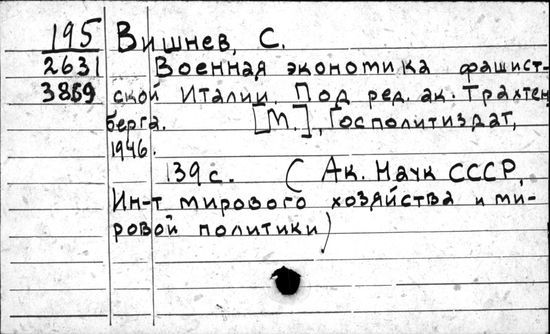 195 Вишнев, С.
2631 Военная экономика фашист-
3869 ской Италии. Под ред. ак. Трахтен
берга. [М.], Госполитиздат,
1946.
139 с. (Ак. Наук СССР,
Ин-т мирового хозяйства и ми-
ровой политики)